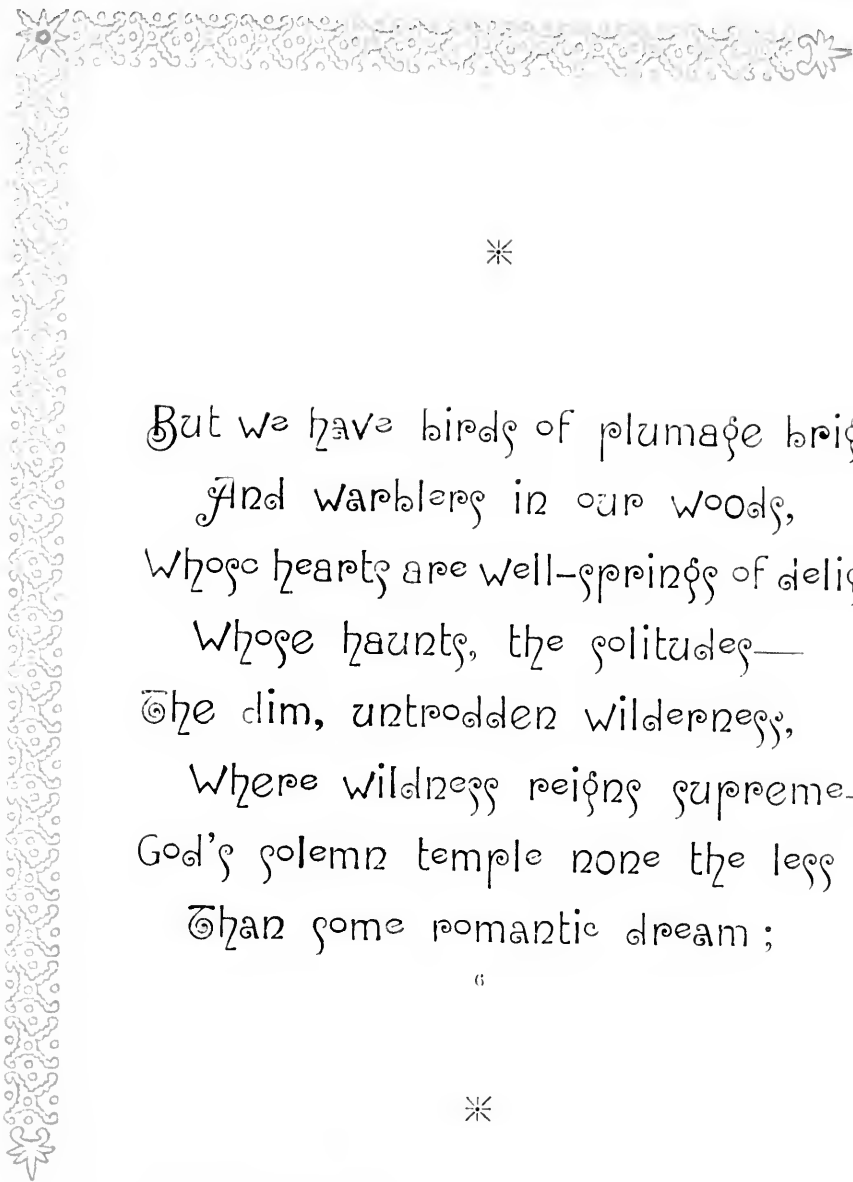 But we have birds of plumage brig
And warblers in our woods,
Whose hearts are well-springs of delig
Whose haunts, the solitudes—
The dim, untrodden wilderness,
Where wildness reigns supreme—
God's solemn temple none the less
Than some romantic dream ;
6